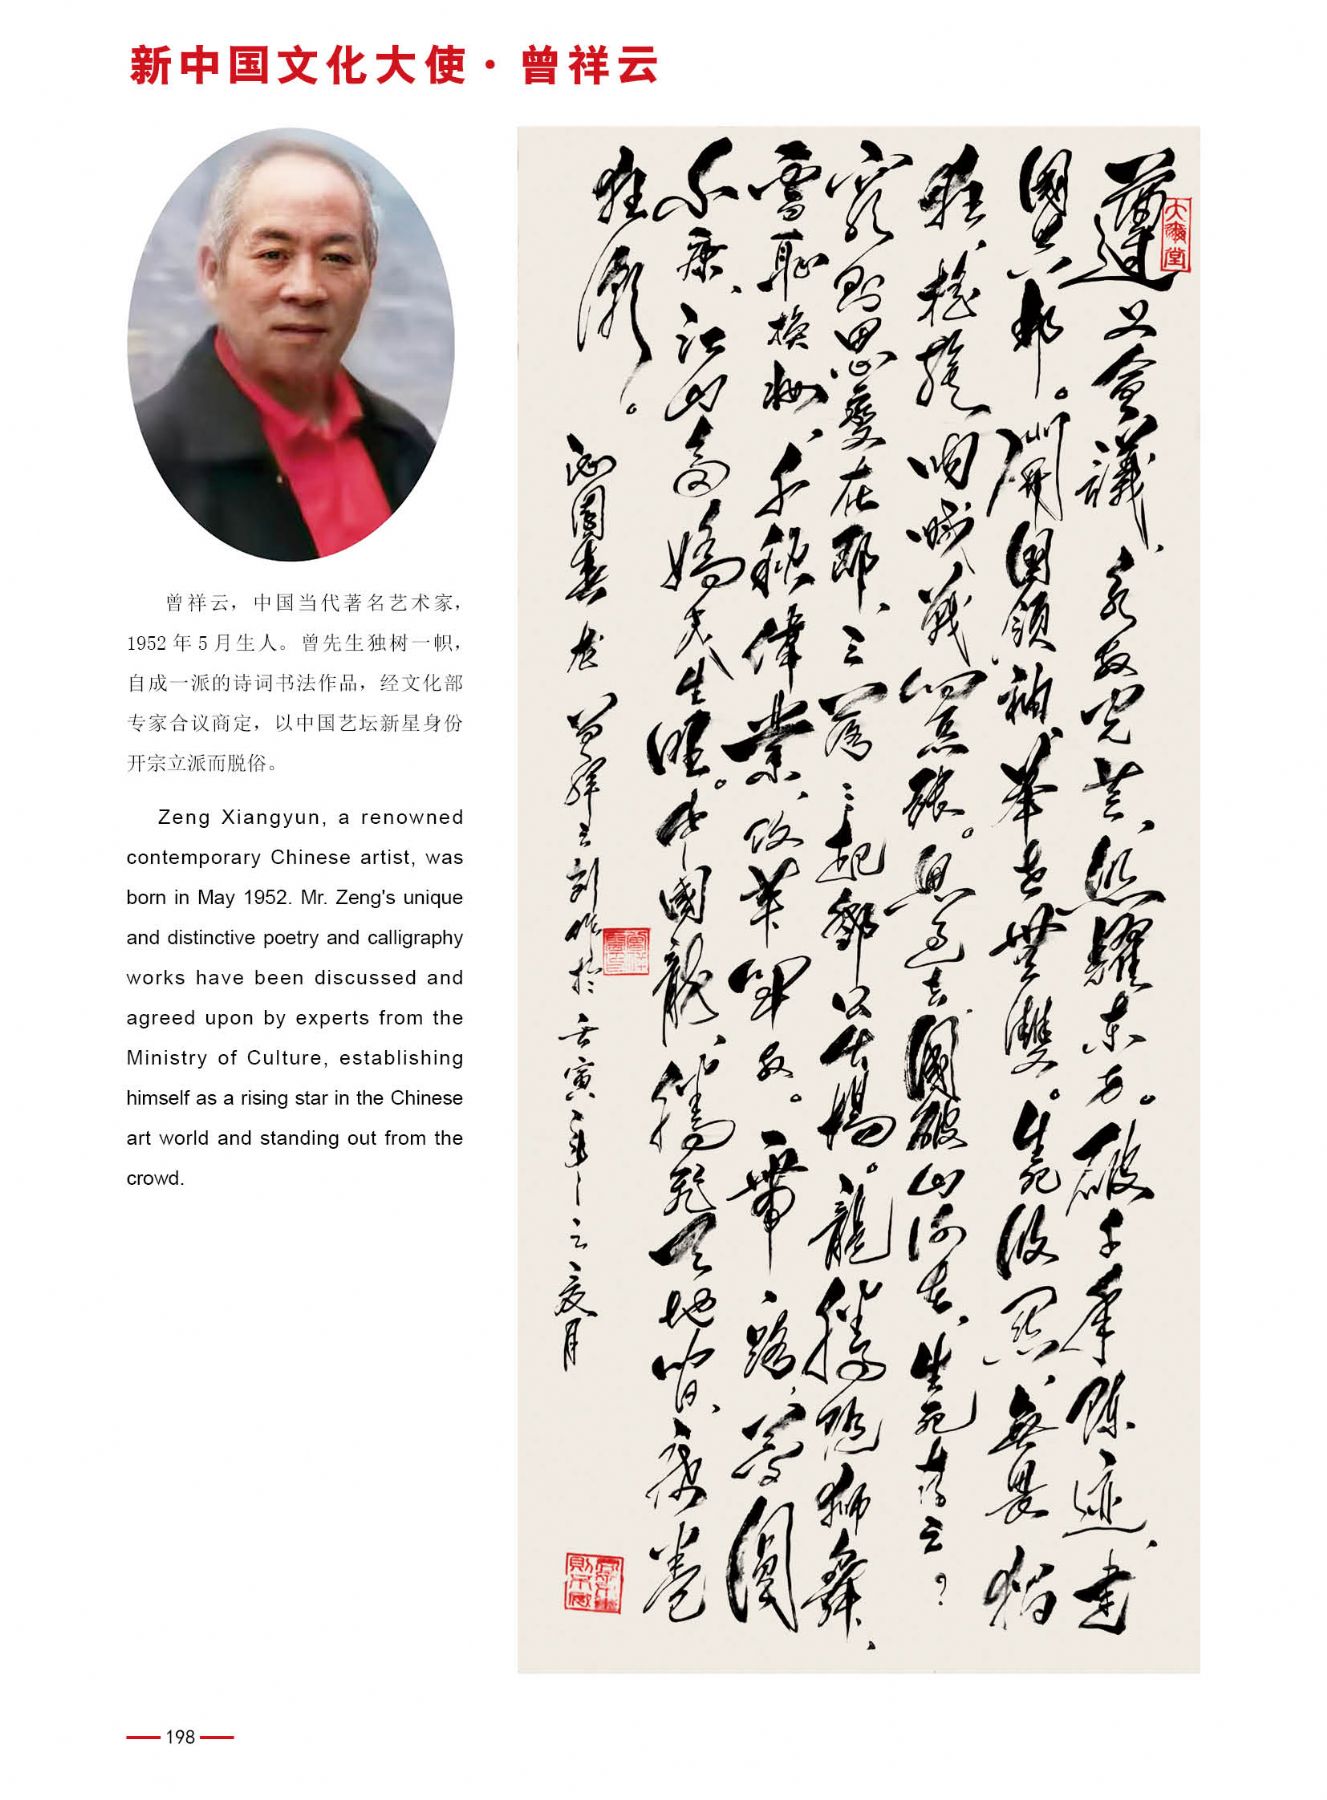 新中国文化大使·曾祥云
曾祥云，中国当代著名艺术家，
1952 年 5 月生人。曾先生独树一帜，
自成一派的诗词书法作品，经文化部
专家合议商定，以中国艺坛新星身份
开宗立派而脱俗。
Zeng Xiangyun, a renowned
contemporary Chinese artist, was
born in May 1952. Mr. Zeng's unique
and distinctive poetry and calligraphy
works have been discussed and
agreed upon by experts from the
Ministry of Culture, establishing
himself as a rising star in the Chinese
art world and standing out from the
crowd.
遵义會議、永放光芒、照耀东方。破千年陈迹、建
國兴邦。開国領袖、举世無雙。生死 無畏猖
狂、摇旗呐喊战 张。思过去、國破山河在、生死存亡?
穷則思變在 三落三起鄧公 龍騰 獅舞、
雪恥换妆、千秋偉業、改革開放。一带一路、夢圆
小康、江山多嬌民生旺。中國龍、腾飛天地间、席卷
狂潮。
沁園春 龙 曾祥云創作於壬寅年之夏月
198